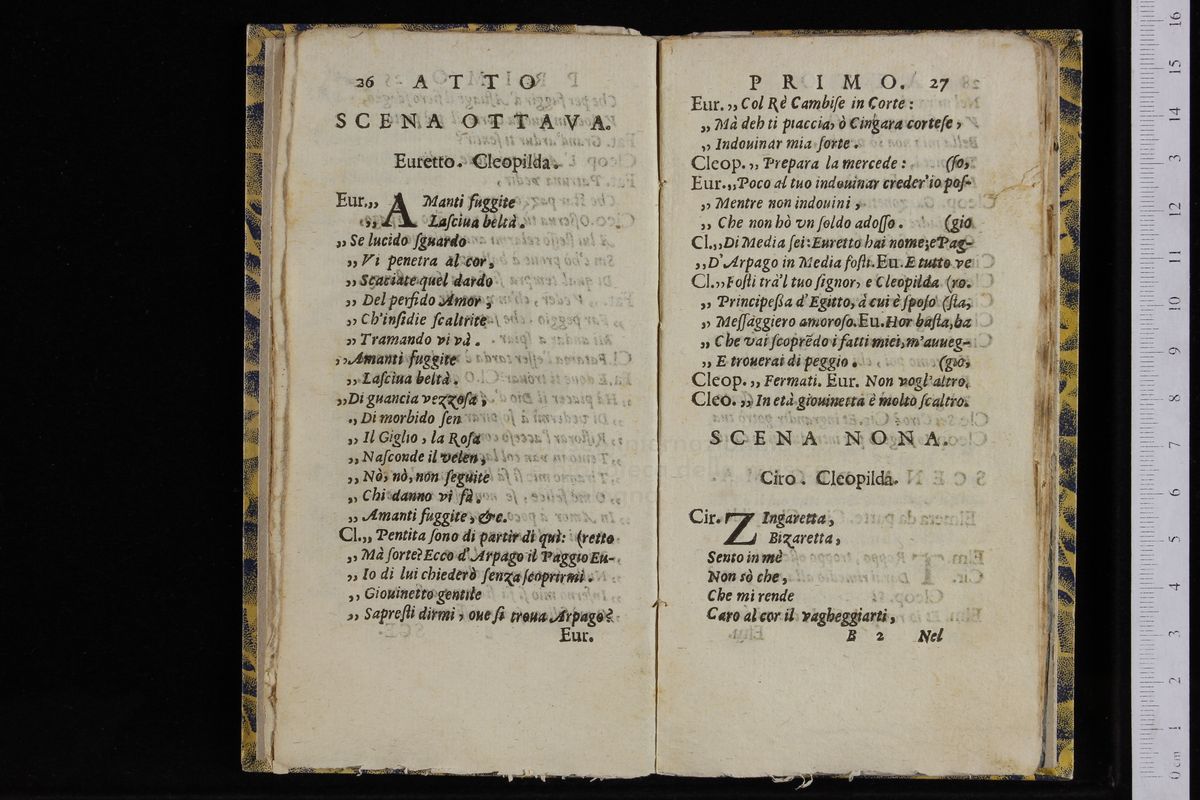 26 ATTO
SCENA OTTAVA.
Euretto. Cleopilda.
Eur.,, AManti fuggite
,, Laſciua beltà.
,, Se lucido ſguardo
,, Vi penetra al cor,
,, Scaciate quel dardo
,, Del perfido Amor;
,, Ch'inſidie ſcaltrite
,, Tramando vi và.
,, Amanti fuggite
,, Laſciua beltà.
,, Di guancia vezzoſa,
,, Di morbido ſen
,, Il Giglio, la Roſa
,, Naſconde il velen,
,, Nò, nò, non ſeguite
,, Chi danno vi fà.
,, Amanti fuggite, &c.
Cl.,, Pentita ſono di partir di quì: (retto
,, Mà ſorte? Ecco d'Arpago il Paggio Eu-
,, Io di lui chiederò ſenza ſcoprirmi.
,, Giouinetto gentile
,, Sapreſti dirmi, oue ſi troua Arpago?
Eur.
PRIMO. 27
Eur.,, Col Rè Cambiſe in Corte:
,, Mà deh ti piaccia, ò Cingara corteſe,
,, Indouinar mia ſorte.
Cleop.,, Prepara la mercede: (ſo,
Eur.,, Poco al tuo indouinar creder'io poſ-
,, Mentre non indouini,
,, Che non hò vn ſoldo adoſſo. (gio
Cl.,, Di Media ſei: Euretto hai nome; e Pag-
,, D'Arpago in Media foſti. Eu. E tutto ve
Cl.,, Foſti trà'l tuo ſignor, e Cleopilda (ro.
,, Principeßa d'Egitto, à cui è ſpoſo (ſta,
,, Meſſaggiero amoroſo. Eu. Hor baſta, ba
,, Che vai ſcoprẽdo i fatti miei, m'auueg-
,, E trouerai di peggio. (gio,
Cleop.,, Fermati. Eur. Non vogl'altro,
Cleo.,, In età giouinetta è molto ſcaltro.
SCENA NONA.
Ciro. Cleopilda.
Cir. ZIngaretta,
Bizaretta,
Sento in mè
Non sò che,
Che mi rende
Caro al cor il vagheggiarti,
B 2 Nel